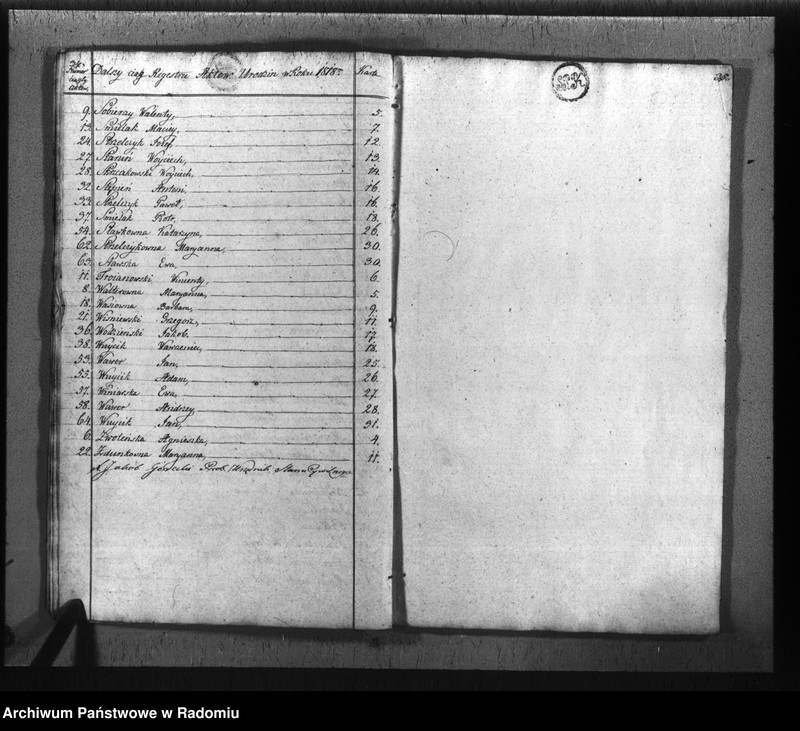 Numer
ciągły
Aktów
Dalszy ciąg Rejestru Aktów Urodzin w Roku 1818
Karta
9. Sobieray Walenty, 5.
13. Smielak Maciey, 7.
24. Strzelczyk Jozef, 12.
27. Stanin Woyciech, 13.
28. Woyciech 14.
32. Stępień Antoni 16.
33. Strzelczyk Paweł, 16.
37. Smielak Piotr, 18.
54. Katarzyna, 26.
62. Strzelczykowna Maryanna, 30.
63. Sławska Ewa, 30.
11. Troianowski Wincenty, 6.
8. Walterowna Maryanna, 5.
18. Wasiowna Barbara, 9.
21. Wisniewski Grzegorz, 11.
36. Wodzienski Jakob, 17.
38. Wuycik Wawrzeniec, 18.
53. Wawer Jan, 25.
55. Wuycik Adam, 26.
57. Winiarska Ewa, 27.
58. Wawer Andrzey, 28.
64. Wuycik Jan, 31.
6. Zwoleńska Agnieszka, 4.
22. Maryanna, 11.
X Jakób Prob. Urzędnik Stanu Cywilnego
Archiwum Państwowe w Radomiu